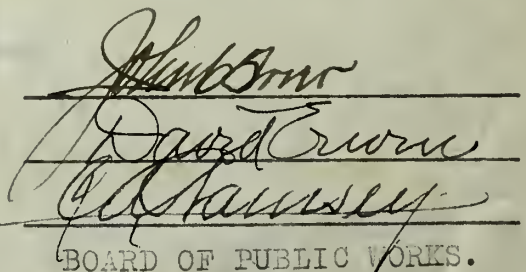 John
David Erwin
C A Ramsey
BOARD OF PUBLIC WORKS.